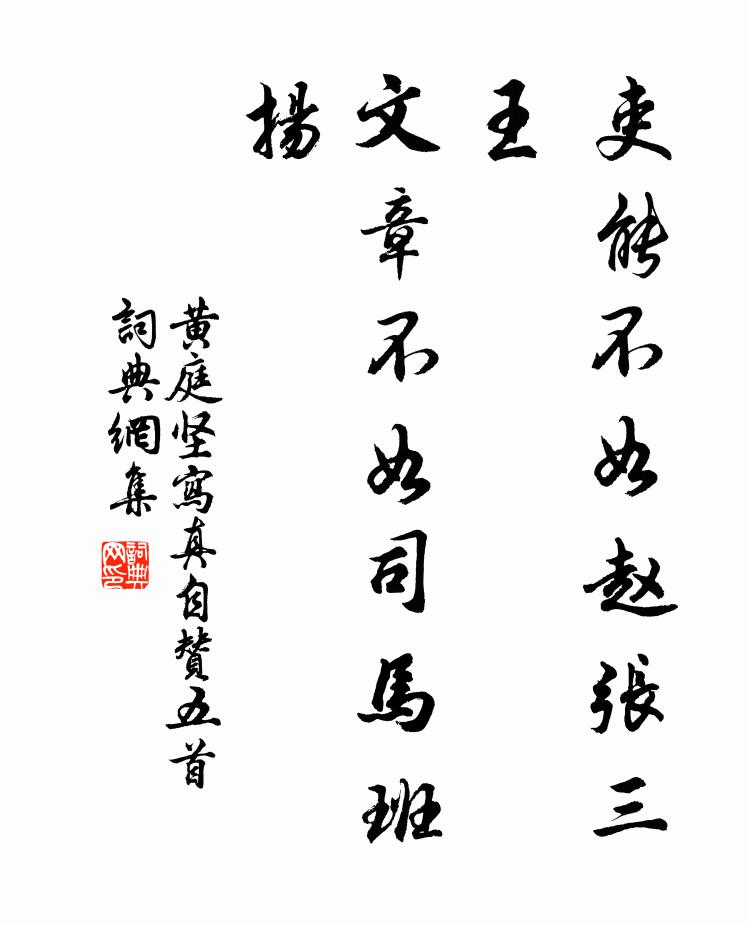 吏能不如赵張三
王
文章不如司馬班
揚
黄庭坚寫真自賛五首
詞典網集
詞典网印